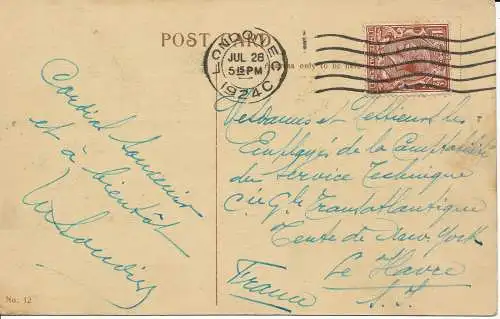 POST CARD
LONDON. E.C.
JUL 28
5 15 PM
1924 C
only to be
Cordial Souvenir
et à bientôt
Mesdames et Messieurs les
Employés de la Comptabilité
du Service Technique
Cie Gle Transatlantique
Tente de New York
Le Havre
France
No. 12